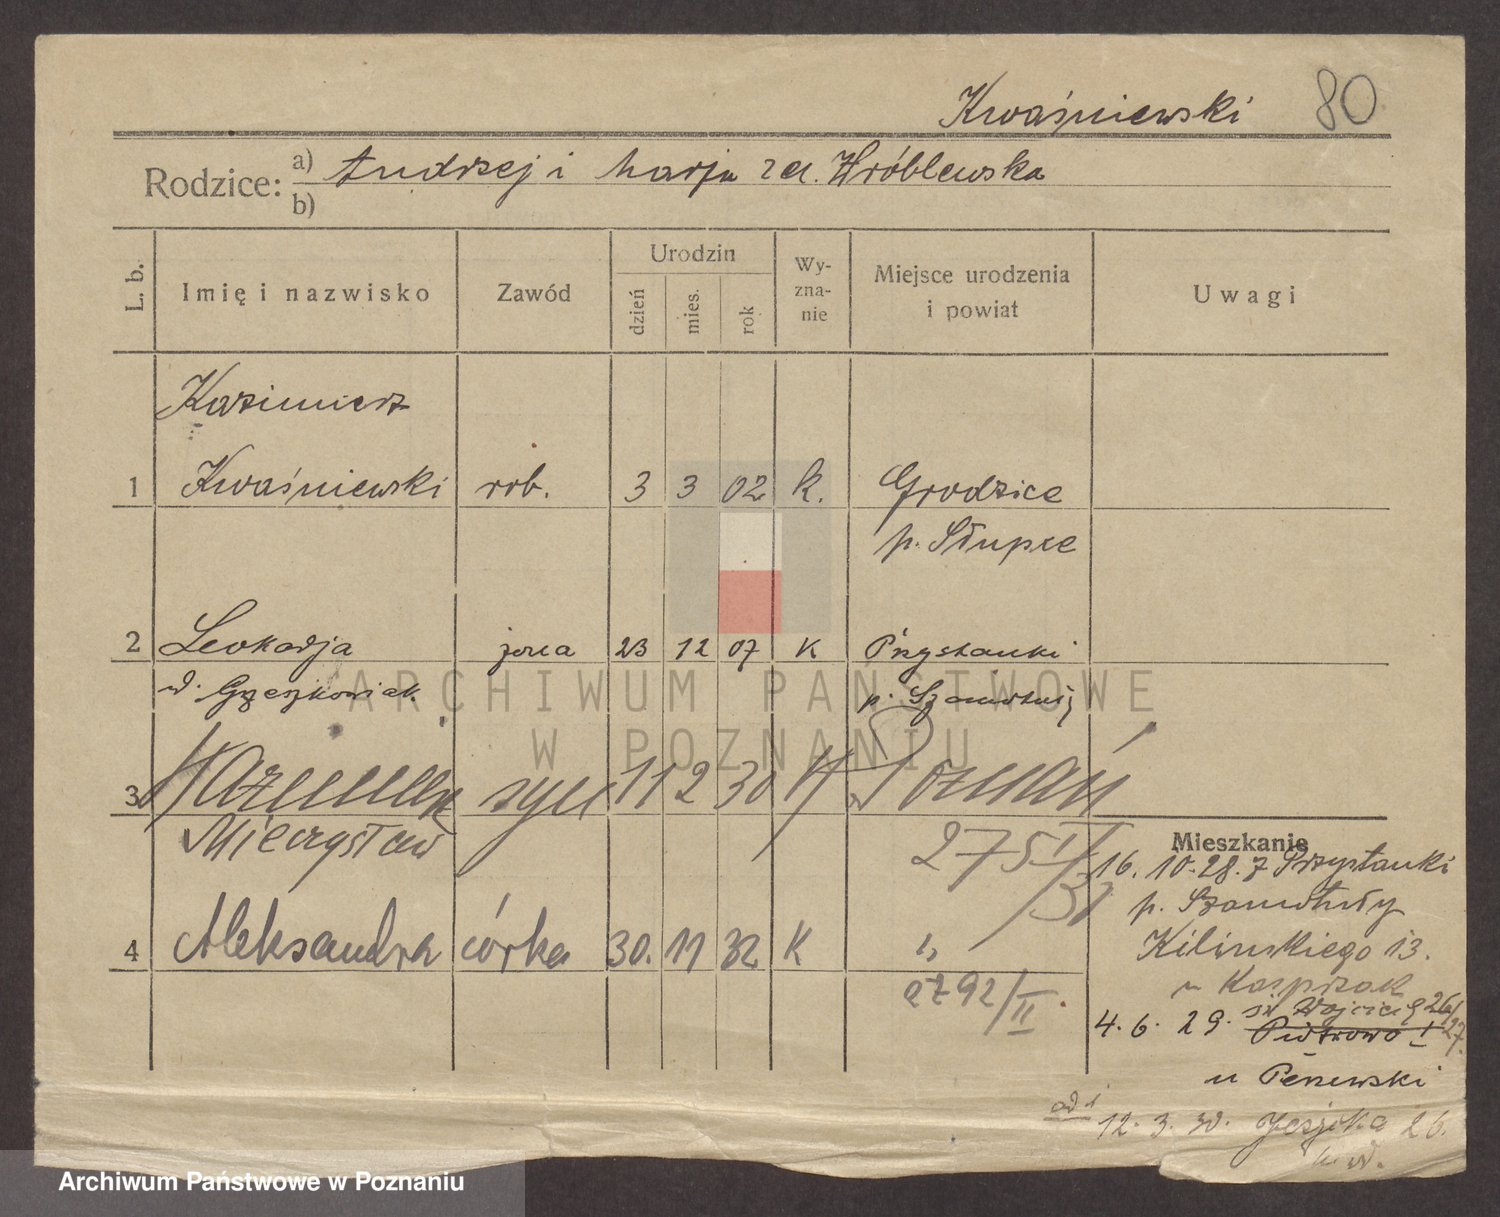 Kwaśniewski 80
Rodzice: a) Andrzej i Marja Wróblewska
b)
L. b. Imię i nazwisko Zawód Urodzin dzień mies. rok Wyznanie Miejsce urodzenia i powiat Uwagi
Kazimierz
1 Kwaśniewski rob. 3 3 02 k. Grodzice
p. Słupce
2 Leokadja żona 23 12 07 K Przystanki
p. Szamotuły
3 syn 11 2 30 K Poznań
Mieczysław 275
4 Aleksandra córka 30. 11 32 K "
2792/II
Mieszkanie
16. 10. 28. z Przystanki
p. Szamotuły
Kilińskiego 13.
u Kasprzak
św Wojciech 26/27.
4. 6. 29. Piotrowo I
u Perzewski
od
12. 3. 30. 26.
ARCHIWUM PAŃSTWOWE
W POZNANIU
Archiwum Państwowe w Poznaniu